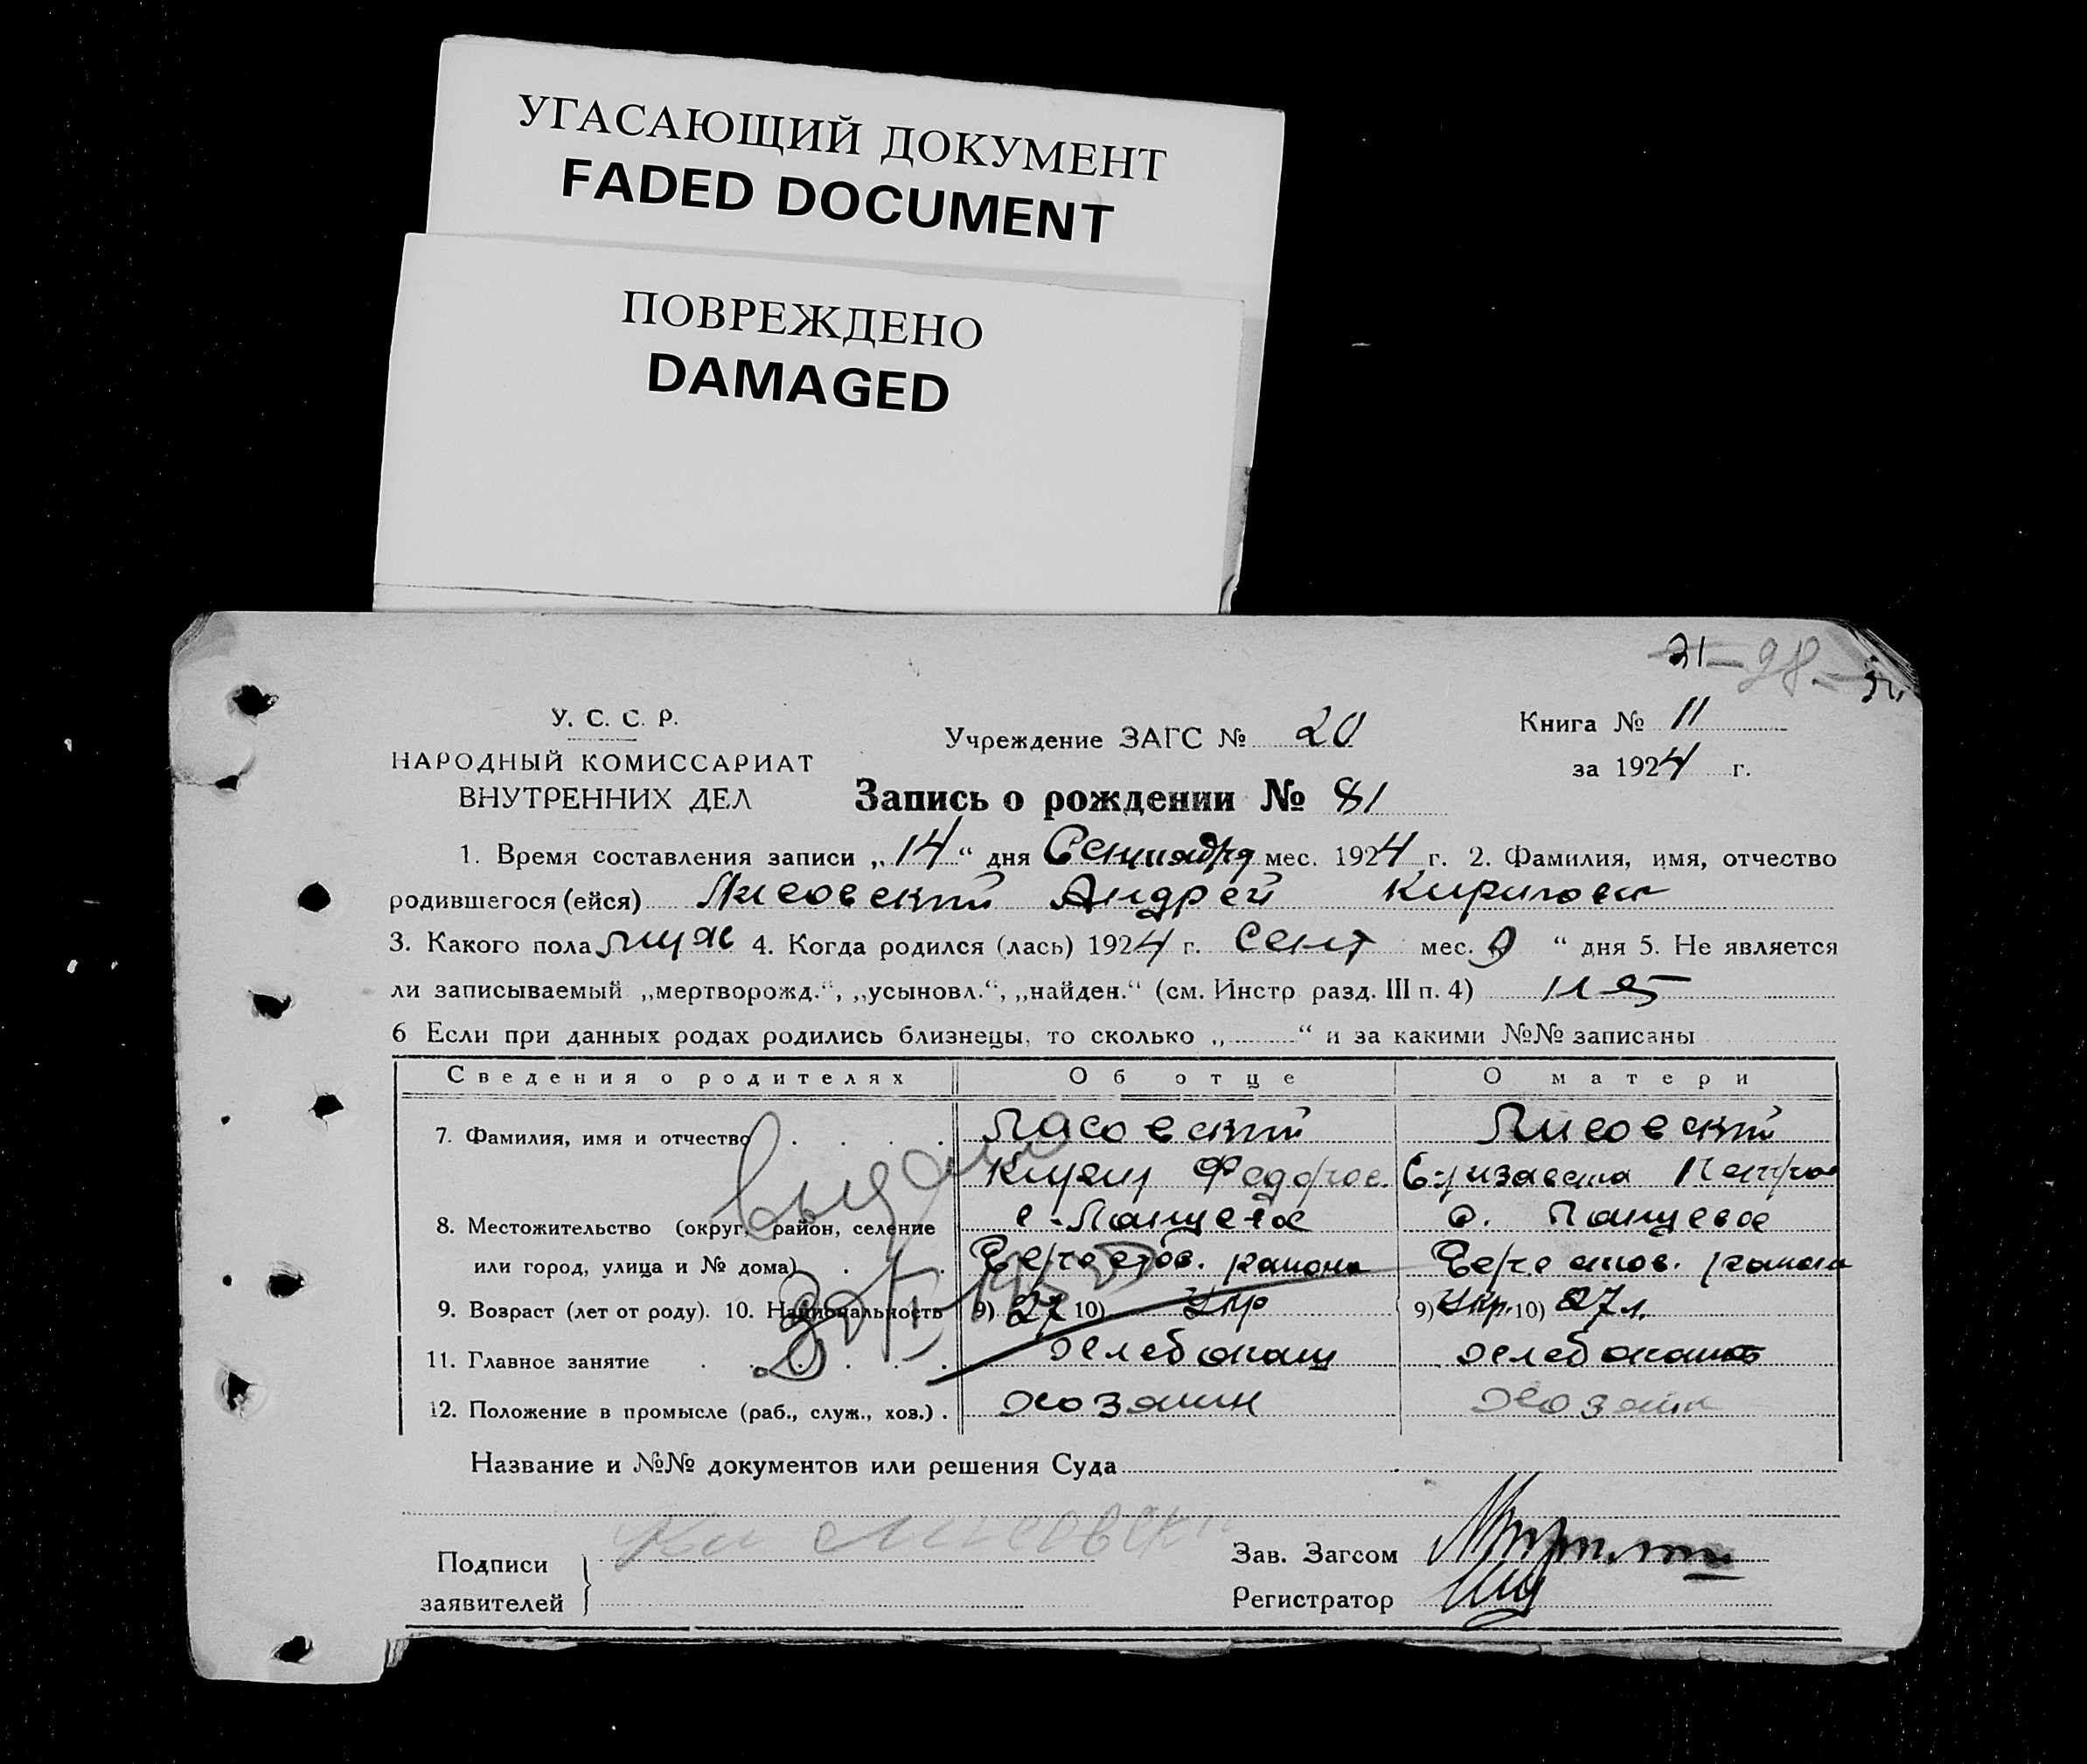 УГАСАЮЩИЙ ДОКУМЕНТ
FADED DOCUMENT
ПОВРЕЖДЕНО
DAMAGED
21 — 98 —
У. С. С. Р.
НАРОДНЫЙ КОМИССАРИАТ
ВНУТРЕННИХ ДЕЛ
Учреждение ЗАГС № 20
Книга № 11
за 1924 г.
Запись о рождении № 81
1. Время составления записи „14“ дня Сентября мес. 1924 г. 2. Фамилия, имя, отчество
родившегося (ейся) Лисовский Андрей Кирилович
3. Какого пола муж 4. Когда родился (лась) 1924 г. сент мес. 9 “ дня 5. Не является
ли записываемый „мертворожд.“, „усыновл.“, „найден.“ (см. Инстр разд. III п. 4) нет
6 Если при данных родах родились близнецы, то сколько „ “ и за какими №№ записаны
Сведения о родителях Об отце О матери
7. Фамилия, имя и отчество Лисовский Лисовский
Кирил Федоров. Елизавета Петров
8. Местожительство (округ, район, селение
или город, улица и № дома) района района
9. Возраст (лет от роду). 10. Национальность 9) 27 10) Укр 9) Укр. 10) 27 л.
11. Главное занятие хлебопаш хлебопаш
12. Положение в промысле (раб., служ., хоз.) . хозяин хозяин
Название и №№ документов или решения Суда
Подписи
заявителей
Лисовск
Зав. Загсом
Регистратор